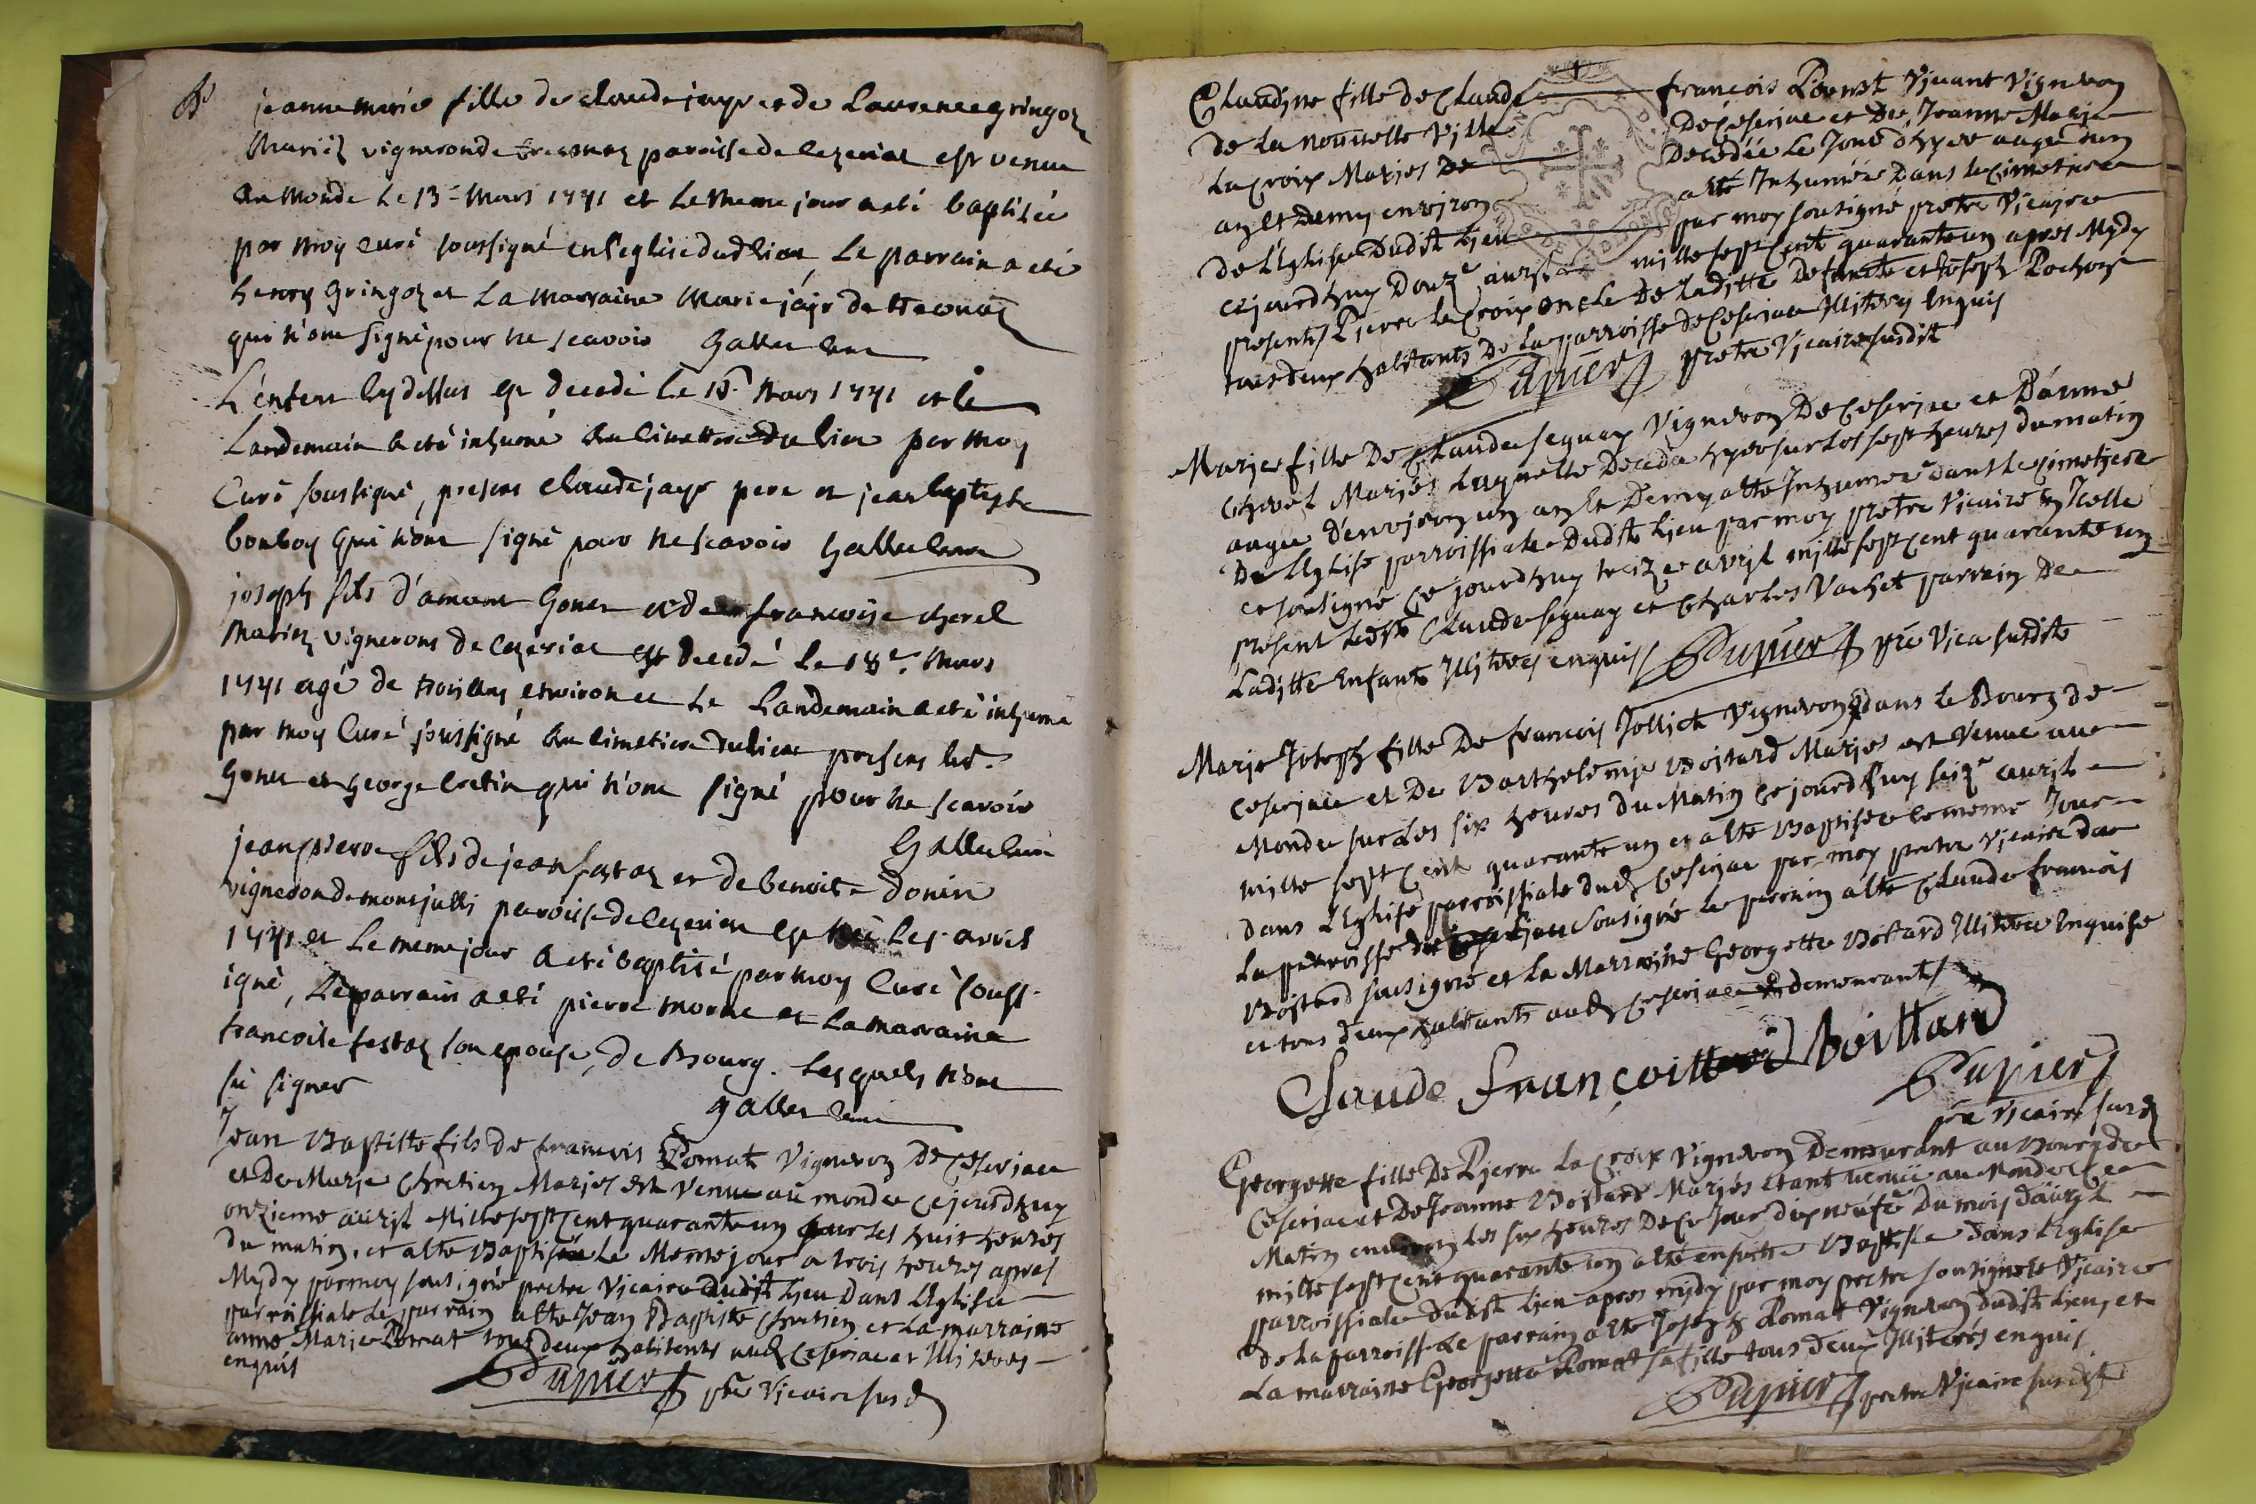 Bé
jeanne marie fille de claude jayr et de Laurence gringoz
mariéz vigneron de trecona paroisse de ceseriat est venue
Au monde Le 13e mars 1741 et le meme jour a eté baptisée
par moy curé soussigné en l'eglise dud lieu, Le parrain a eté
henry gringoz et La marraine marie jayr de treconaz
qui n'ont signé pour ne scavoir
L'enfent cy dessus est decedé Le 18e mars 1741 et le
Landemain a eté inhumé au cimettiere du lieu par moy
curé soussigné, presens claude jayr pere et jean baptiste
qui n'ont signé pour ne scavoir
joseph fils d'amour goner et de francoise cherel
mariez vignerons de ceseriat est decedé Le 18e mars
1741 agé de trois ans environ et Le Landemain a eté inhumé
par moy curé soussigné au cimetiere du lieu presens led.
goner et george cretin qui n'ont signé pour ne scavoir
jean pierre fils de jean festaz et de benoite donin
vigneron de montjulli paroisse de ceseriat est né Le avril
1741 et Le meme jour a eté baptisé par moy curé souss-
igné, Le parrain a eté pierre morne et La marraine
francoise festaz son epouse, de Bourg. Lesquels n'ont
sù signer
Jean Baptiste fils de francois Romat Vigneron de Ceseriac
et De Marie Chretien Mariés est Venu au monde cejourdhuy
onzieme avril Mille sept cent quarante un sur les huit heures
du matin, et a eté Baptisé Le Meme jour a trois heures apres
Mydy par moy sousigné pretre Vicaire dudit Lieu Dans L'Eglise
parroissiale Le parrain a eté Jean Baptiste Chretien et La marraine
anne Marie Romat tous deux habitents aud Ceseriac et Illiterés
enquis
Papier ptre Vicaire susd
Claudine fille de Claude francois Pernet Vivant Vigneron
De La nouvelle Ville De Ceseriac et De Jeanne Marie
Lacroix Mariés Decedée Le Jour d'hyer augée d'un
an et Demy environ a eté Inhumée Dans le Cimetiere
De L'Eglise Dudit Lieu par moy sousigné pretre Vicaire
cejourdhuy Douze avril mille sept cent quarante un apres Mydy
presents Pierre Lacroix oncle De Laditte Defuncte et Joseph Rochon
tous deux habitants De La parroisse de Ceseriac Illiterés Enquis
Papier pretre Vicaire susdit
Marie fille De Claude Seguay Vigneron De Ceseriac et D'anne
Chevel Mariés Laquelle Deceda hyer sur Les sept heures du matin
augée d'environ un an et Demy a eté Inhumée dans Le Cimetiere
De L'Eglise parroissiale Dudit Lieu par moy pretre Vicaire En Icelle
et sousigné ce jourdhuy treize avril mille sept cent quarante un
present Ledit Claude Seguay et Charles Vachet parrain De
Laditte Enfants Illiterés enquis Papier ptre Vica susdit
Marie Joseph fille De francois Jollict Vigneron dans le Bourg de
Ceseriac et De Barthelemie Boitard Mariés est Venue au
Monde sur Les six heures Du Matin Cejourdhuy seize avril
mille sept Cent quarante un et a eté Baptisée Le meme Jour
dans L'Eglise parroissiale dud Ceseriac par moy pretre Vicaire de
La parroisse Lieu Sousigné Le parrain a eté Claude francois
Boitard sousigné et La Marraine Georgette Boitard Illiterée Enquise
et tous deux habitants aud Ceseriac demeurants
Claude françois Boittard
Papier
ptre Vicaire susd
Georgette fille De Pierre Lacroix Vigneron Demeurant au Bourg de
Ceseriac et De Jeanne Boitard Mariés Etant venüe au Monde Ce
Matin environ Les six heures De Ce Jour dix neufe Du mois d'avril
mille sept Cent quarante un a eté ensuitte Baptisée Dans L'Eglise
parroissiale Dudit Lieu apres mydy par moy pretre sousigné Vicaire
de La parroisse Le parrain a eté Joseph Romat Vigneron dudit Lieu, et
La marraine Georgette Romat sa fille tous deux Illiterés enquis
Papier pretre Vicaire susdit